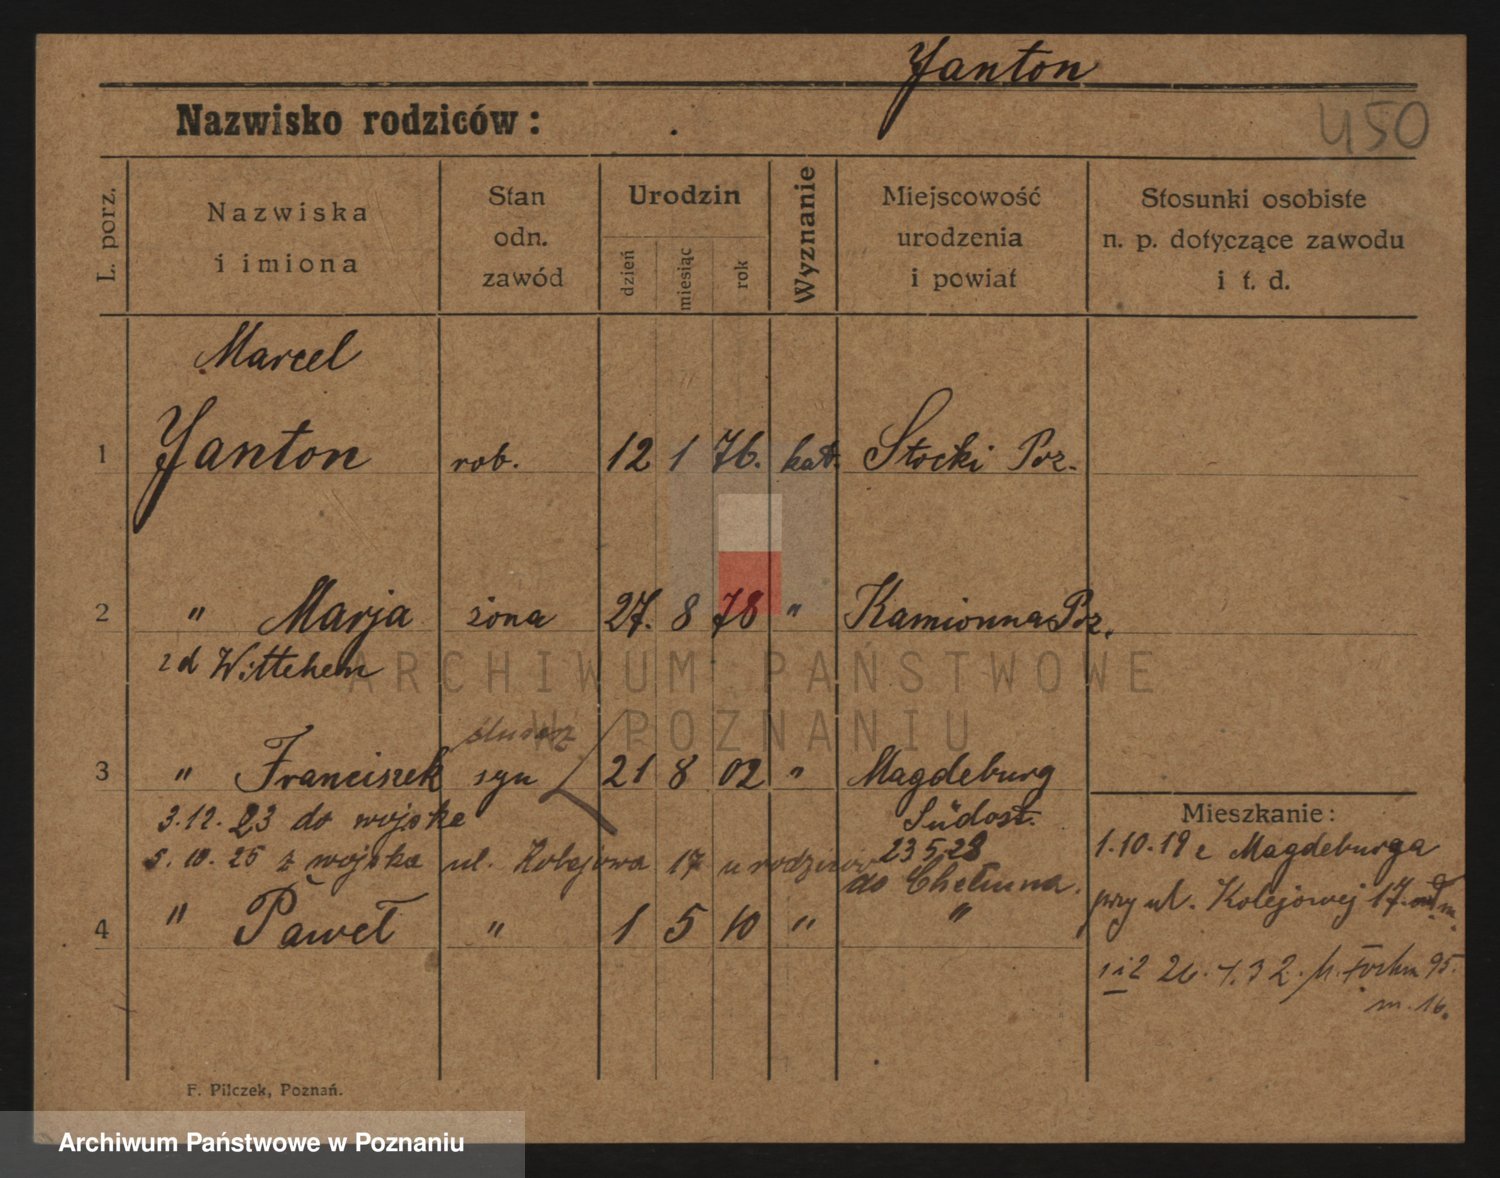 Yanton
Nazwisko rodziców:
450
L. porz.
Nazwiska
i imiona
Stan
odn.
zawód
Urodzin
dzień
miesiąc
rok
Wyznanie
Miejscowość
urodzenia
i powiat
Stosunki osobiste
n. p. dotyczące zawodu
i t. d.
Marcel
1 Yanton rob. 12 1 76. kat. Stocki Poz.
2 " Marja żona 27. 8 78 " Kamionna Poz.
zd Wittchem
ślusarz
3 " Franciszek syn 21 8 02 " Magdeburg
Südost.
3.12.23 do wojska
5.10.25 z wojska ul. Kolejowa 17 u rodziców 23 5 28
do Chełmna.
4 " Paweł " 1 5 10 " "
Mieszkanie:
1.10.19 z Magdeburga
przy ul. Kolejowej 17.
1 i 2 26.7.32. Focha 95.
m. 16.
F. Pilczek, Poznań.
ARCHIWUM PAŃSTWOWE
W POZNANIU
Archiwum Państwowe w Poznaniu